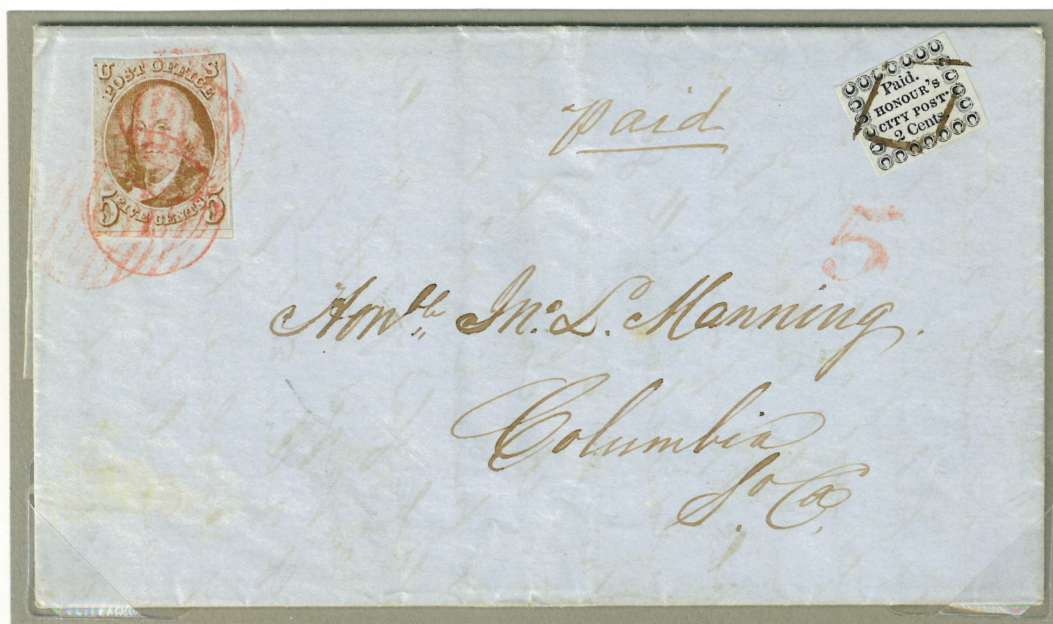 U S
POST OFFICE
5 FIVE CENTS 5
paid
Paid.
HONOUR'S
CITY POST.
2 Cents.
5
Honble Jno. L. Manning.
Columbia
So Ca.